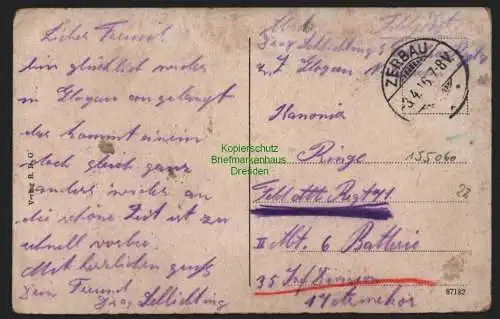 Lieber Freund.
bin glücklich wieder
in Glogau angelangt
das kommt einem
doch gleich ganz
anders wieder an
die schöne Zeit ist zu
schnell vorbei.
Mit herzlichen gruß
Dein Freund
Drag Schlichting
Verlag R. B. O
Drag Schlichting
Glogau
ZERBAU
3.4.16.7-8V.
Kanonier
Ringe
Feld artl Regt 71
II Abt. 6 Batterie
35 Inf Division
155060
22
87182
Kopierschutz
Briefmarkenhaus
Dresden